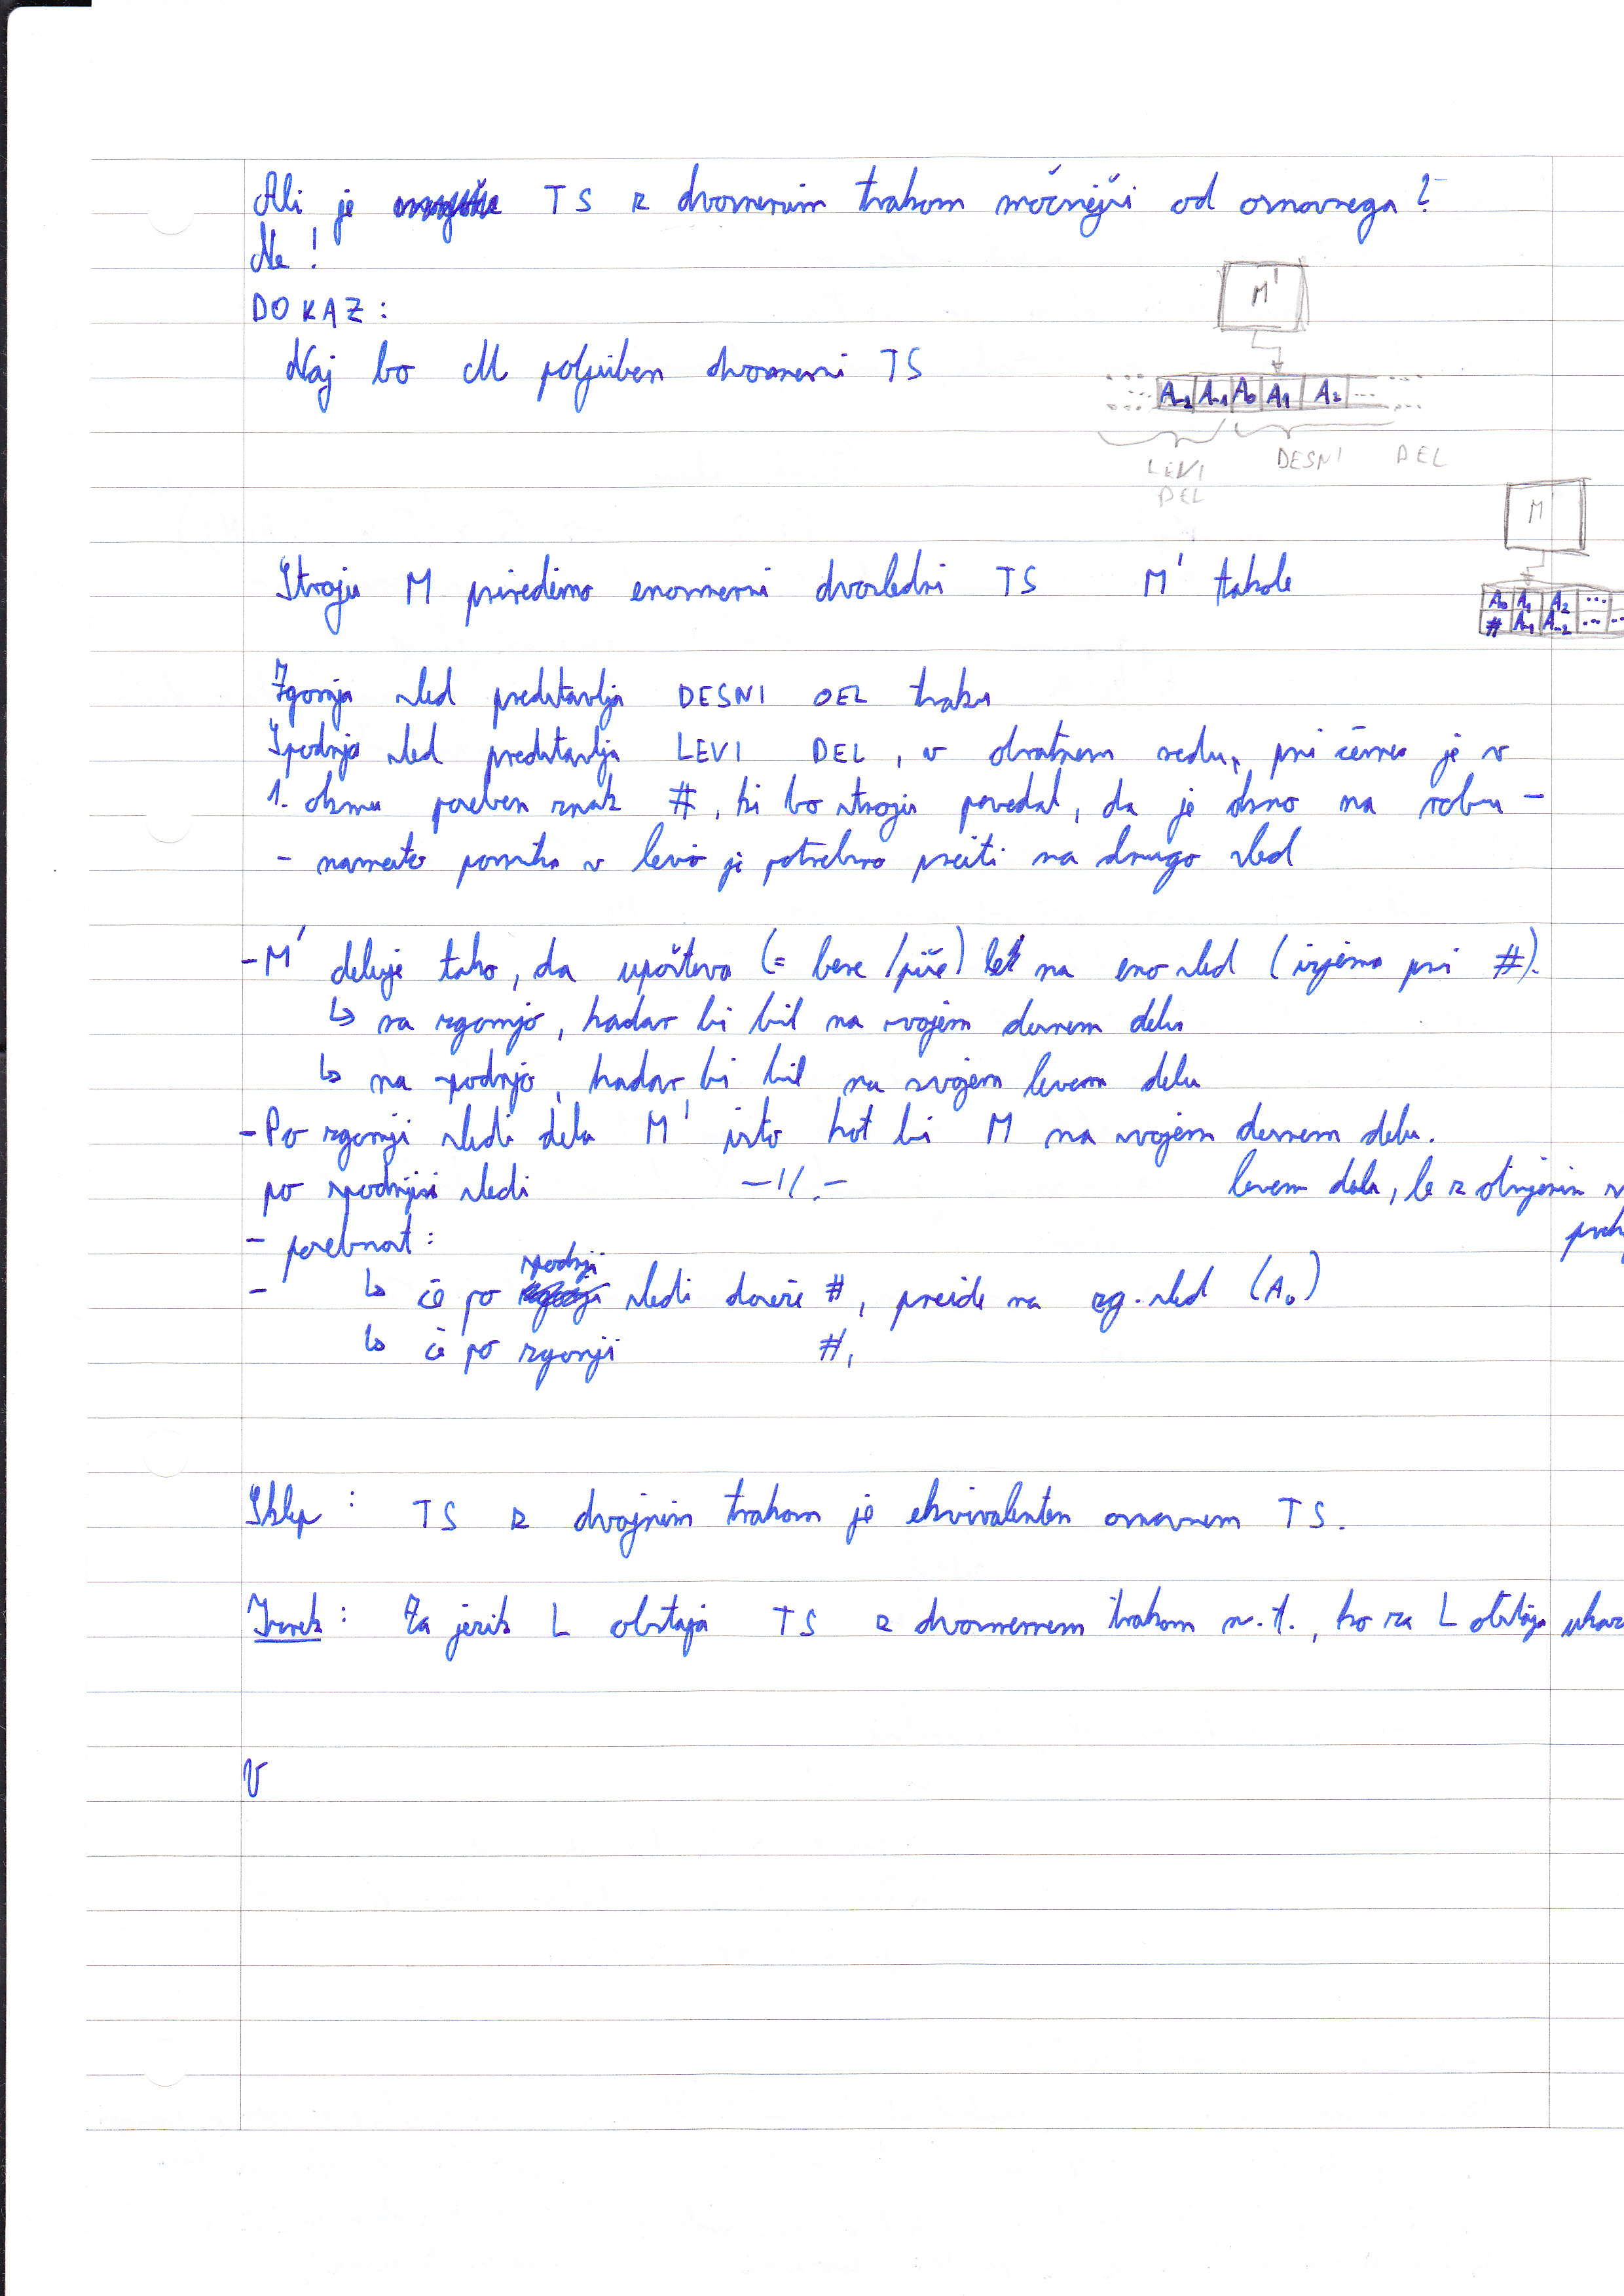 Ali je TS z dvosmernim trakom močnejši od osnovnega?
Ne!
DOKAZ:
M'
Naj bo M poljuben dvosmerni TS
A-2 A-1 A0 A1 A2 ...
LEVI DEL
DESNI DEL
M
Stroju M priredimo enosmerni dvosledni TS M' takole
A0 A1 A2 ...
# A-1 A-2 ...
Zgornja sled predstavlja DESNI DEL traku
Spodnja sled predstavlja LEVI DEL, v obratnem redu, pri čemer je v
1. oknu poseben znak #, ki bo stroju povedal, da je okno na robu -
- namesto pomika v levo je potrebno preiti na drugo sled
- M' deluje tako, da upošteva (= bere/piše) le na eno sled (izjema pri #).
↳ na zgornjo, kadar bi bil na svojem desnem delu
↳ na spodnjo, kadar bi bil na svojem levem delu
- Po zgornji sledi dela M' isto kot bi M na svojem desnem delu.
po spodnji sledi -//- levem delu, le z obrnjenim
- posebnost:
- ↳ če po spodnji sledi doseže #, preide na zg. sled (A0)
↳ če po zgornji #,
Sklep: TS z dvojnim trakom je ekvivalenten osnovnem TS.
Izrek: Za jezik L obstaja TS z dvosmernem trakom n.t., ko za L obstaja
V